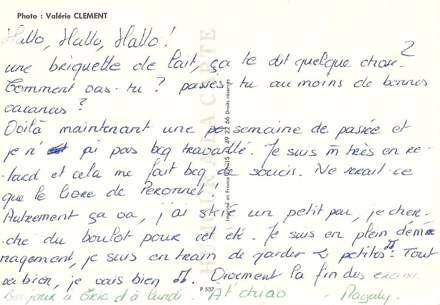 Photo : Valérie CLEMENT
Hallo, Hallo, Hallo !
une briquette de lait, ça te dit quelque chose ?
Comment vas-tu ? passes-tu au moins de bonnes
vacances ?
Voilà maintenant une semaine de passée et
je n'ai pas bcq travaillé. Je suis très en re-
tard et cela me fait bcq de soucis. Ne serait-ce
que le livre de Peronnet !
Autrement ça va, j'ai skié un petit peu, je cher-
che du boulot pour cet été. Je suis en plein démé-
nagement, je suis en train de garder 2 petites. Tout
va bien, je vais bien. Vivement la fin des exams
Bonjour à Eric et à lundi. At'chiao Magaly.
P 537